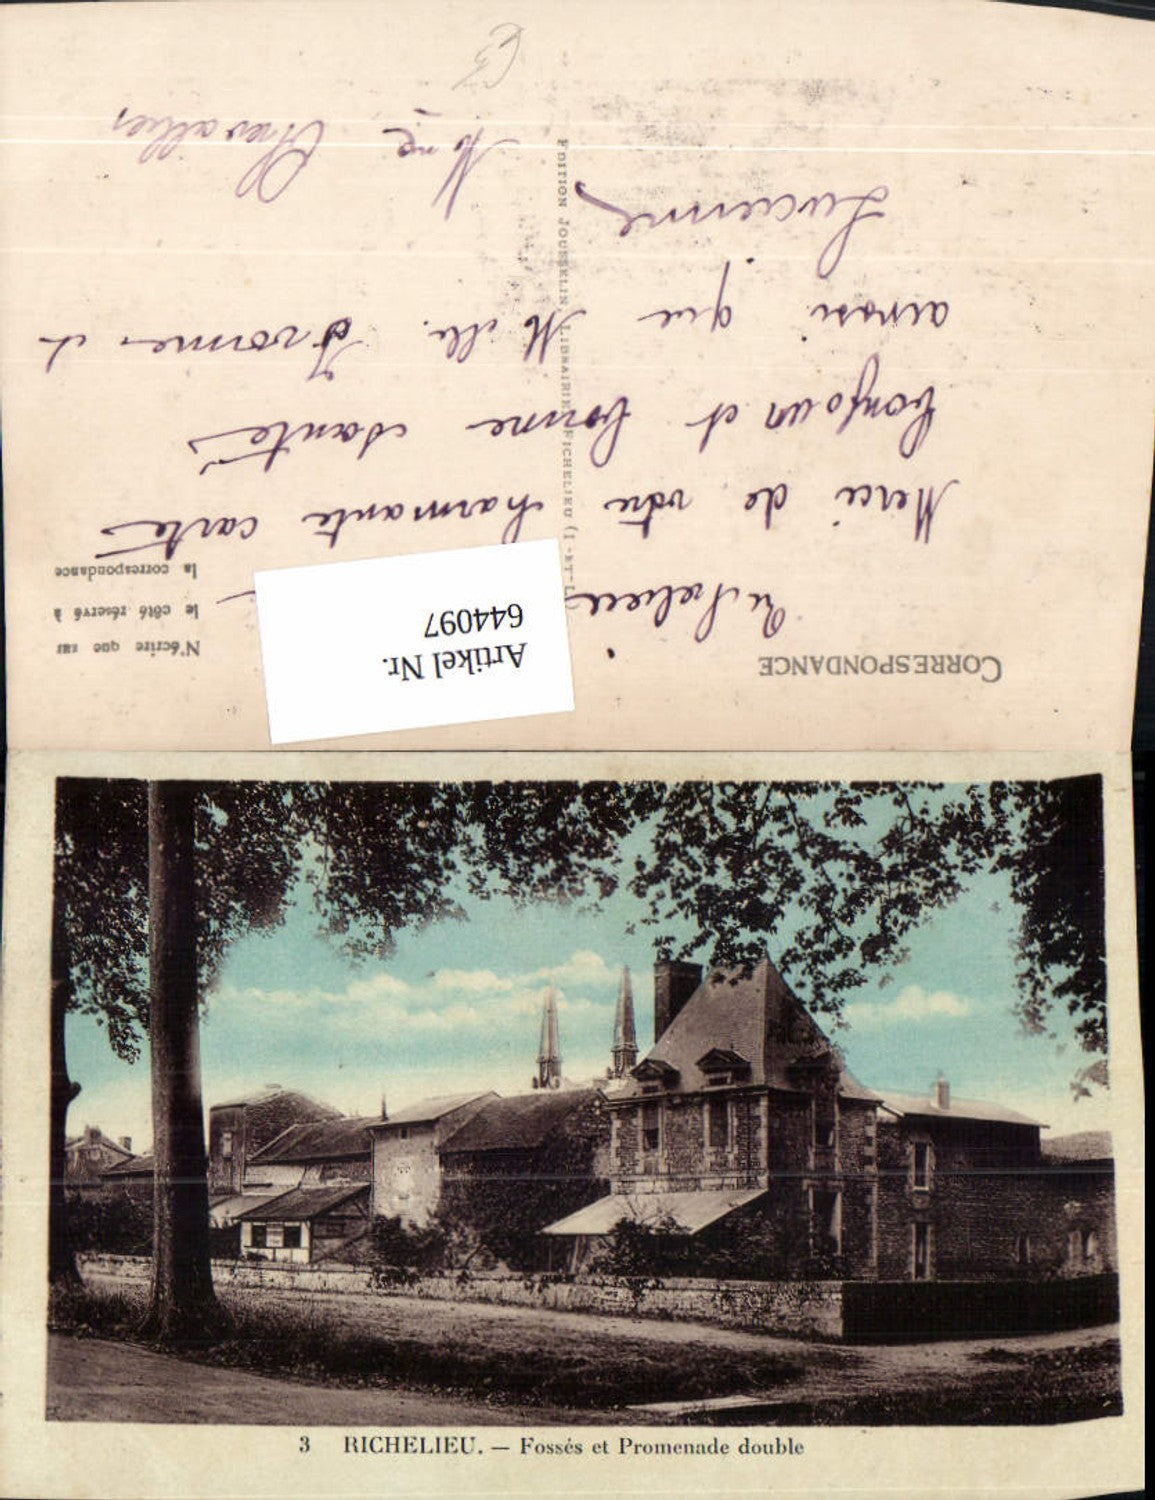 CORRESPONDANCE
N'écrire que sur
le côté réservé à
la correspondance
Artikel Nr.
644097
Richelieu
Merci de votre charmante carte
bonjour et bonne santé
ainsi que Melle. Yvonne et
Lucienne
Mme Chevallier
EDITION JOUSSELIN, LIBRAIRIE, RICHELIEU (I.-ET-L.)
3 RICHELIEU. — Fossés et Promenade double